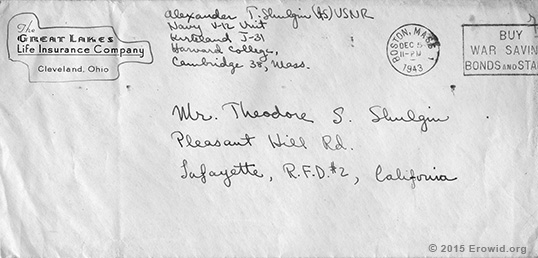 The
GREAT LAKES
Life Insurance Company
Cleveland, Ohio
Alexander T. Shulgin (AS) USNR
Navy V-12 Unit
Kirkland J-31
Harvard College,
Cambridge 38, Mass.
BOSTON, MASS. 1
DEC 5
11-PM
1943
BUY
WAR SAVIN
BONDS AND STA
Mr. Theodore S. Shulgin
Pleasant Hill Rd.
Lafayette, R.F.D. #2, California
© 2015 Erowid.org